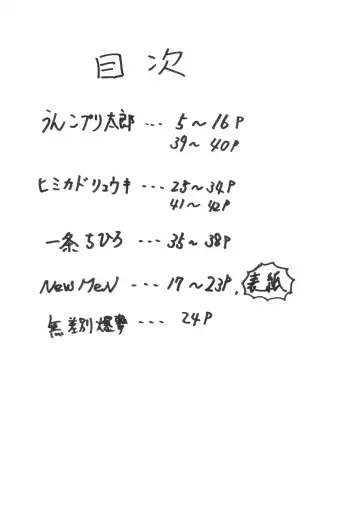 目次
うんこプリ太郎 … 5〜16P
39〜40P
ヒミカドリュウキ … 25〜34P
41〜42P
一条ちひろ … 35〜38P
NewMeN … 17〜23P, 表紙
無差別爆撃 … 24P